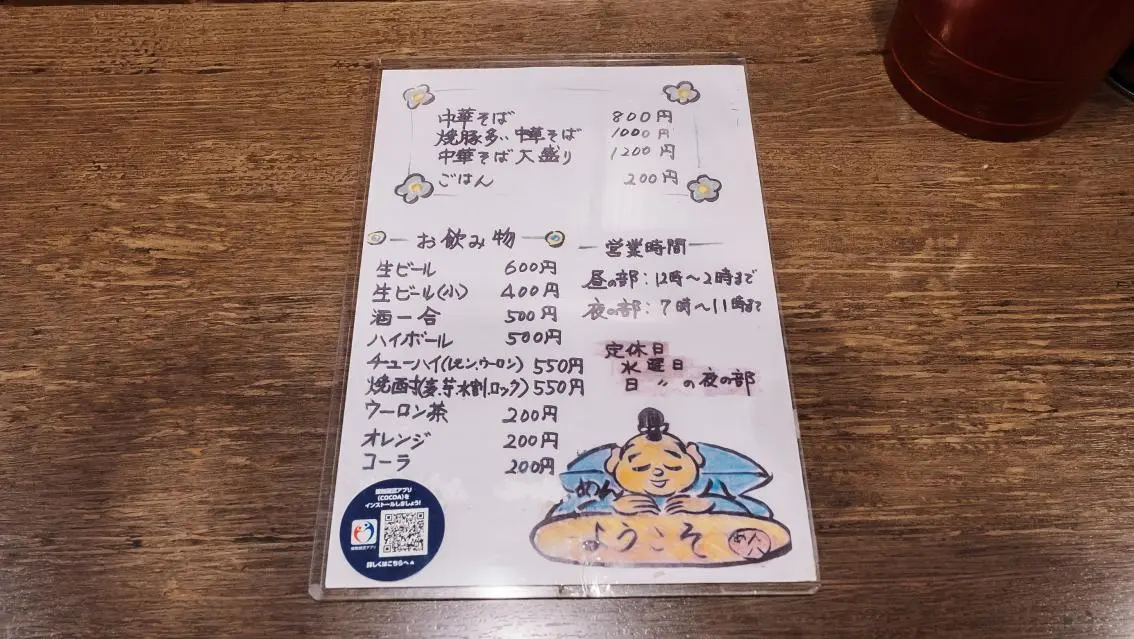 中華そば 800円
焼豚多い中華そば 1000円
中華そば大盛り 1200円
ごはん 200円
お飲み物
生ビール 600円
生ビール(小) 400円
酒一合 500円
ハイボール 500円
チューハイ(レモン,ウーロン) 550円
焼酎(麦,芋,水割,ロック) 550円
ウーロン茶 200円
オレンジ 200円
コーラ 200円
営業時間
昼の部:12時〜2時まで
夜の部:7時〜11時まで
定休日
水曜日
日〃の夜の部
めん
ようこそ
接触確認アプリ
(COCOA)を
インストールしましょう!
接触確認アプリ
詳しくはこちらへ▲